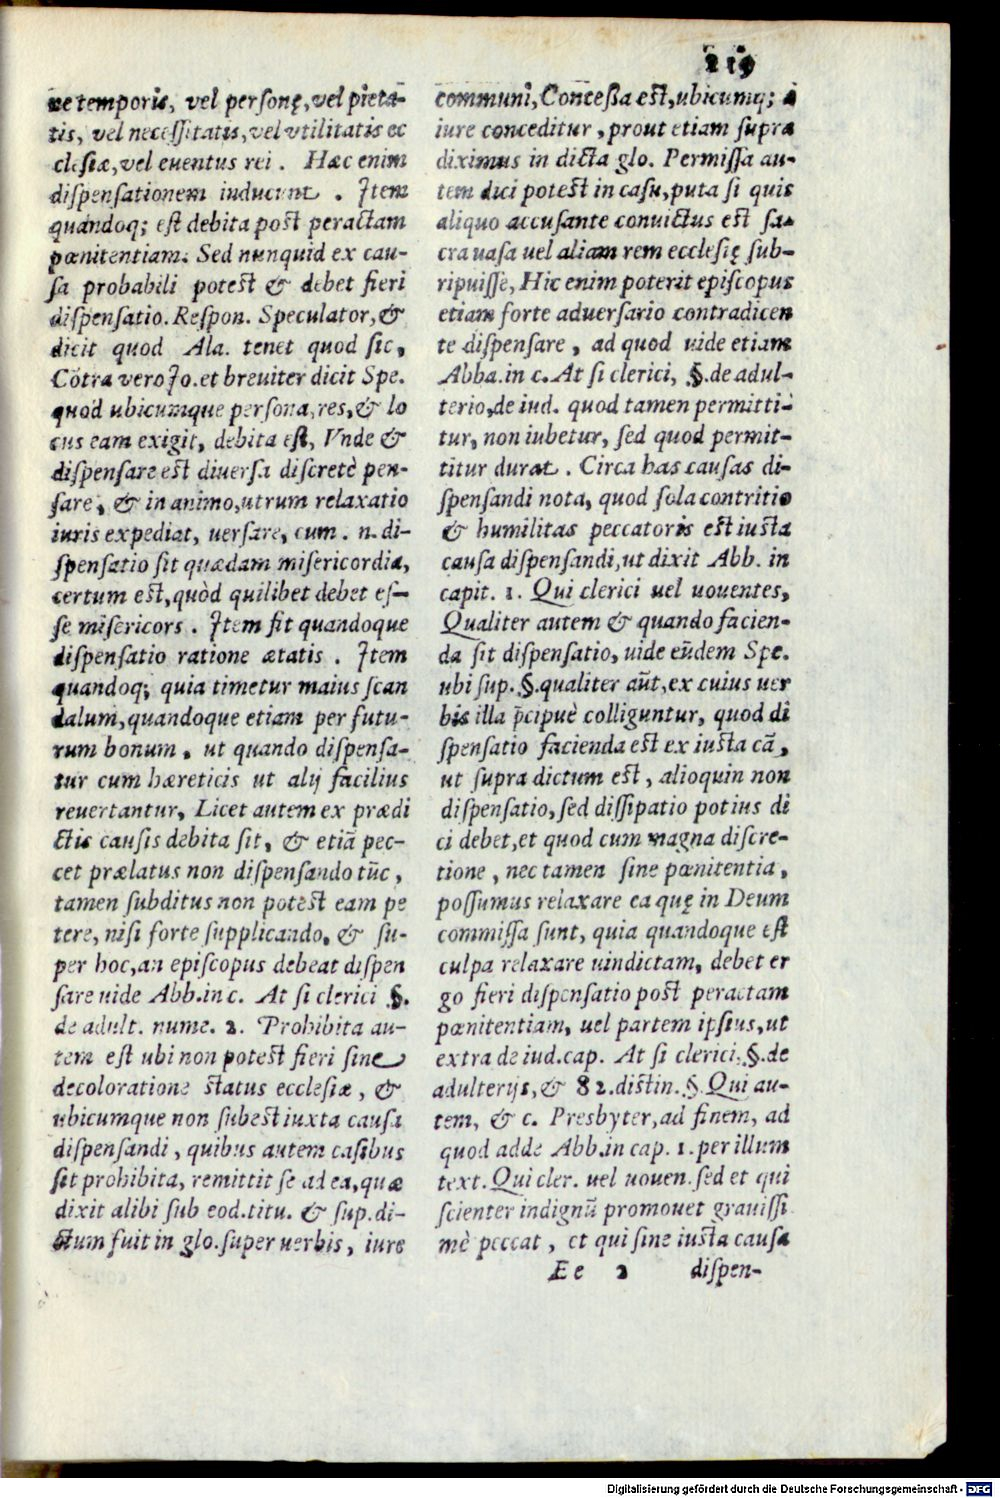 219
ne temporis, vel personę, vel pieta-
tis, vel necessitatis, vel vtilitatis ec
clesiæ, vel euentus rei. Hæc enim
dispensationem inducunt. Item
quandoq; est debita post peractam
pœnitentiam. Sed nunquid ex cau-
sa probabili potest & debet fieri
dispensatio. Respon. Speculator, &
dicit quod Ala. tenet quod sic,
Cōtra vero Jo. et breuiter dicit Spe.
quòd ubicumque persona, res, & lo
cus eam exigit, debita est, Vnde &
dispensare est diuersa discretè pen-
sare, & in animo, utrum relaxatio
iuris expediat, uersare, cum. n. di-
spensatio sit quædam misericordia,
certum est, quòd quilibet debet es-
se misericors. Item fit quandoque
dispensatio ratione ætatis. Item
quandoq; quia timetur maius scan
dalum, quandoque etiam per futu-
rum bonum, ut quando dispensa-
tur cum hæreticis ut alij facilius
reuertantur, Licet autem ex prædi
ctis causis debita sit, & etiā pec-
cet prælatus non dispensando tūc,
tamen subditus non potest eam pe
tere, nisi forte supplicando, & su-
per hoc, an episcopus debeat dispen
sare uide Abb. in c. At si clerici §.
de adult. nume. 2. Prohibita au-
tem est ubi non potest fieri sine
decoloratione status ecclesiæ, &
ubicumque non subest iuxta causa
dispensandi, quibus autem casibus
sit prohibita, remittit se ad ea, quæ
dixit alibi sub eod. titu. & sup. di-
ctum fuit in glo. super uerbis, iure
communi, Concessa est, ubicumq; à
iure conceditur, prout etiam supra
diximus in dicta glo. Permissa au-
tem dici potest in casu, puta si quis
aliquo accusante conuictus est sa-
cra uasa uel aliam rem ecclesię sub-
ripuisse, Hic enim poterit episcopus
etiam forte aduersario contradicen
te dispensare, ad quod uide etiam
Abba. in c. At si clerici, §. de adul-
terio, de iud. quod tamen permitti-
tur, non iubetur, sed quod permit-
titur durat. Circa has causas di-
spensandi nota, quod sola contritio
& humilitas peccatoris est iusta
causa dispensandi, ut dixit Abb. in
capit. 1. Qui clerici uel uouentes,
Qualiter autem & quando facien-
da sit dispensatio, uide eūdem Spe.
ubi sup. §. qualiter aūt, ex cuius uer
bis illa p̄cipuè colliguntur, quod di
spensatio facienda est ex iusta cā,
ut supra dictum est, alioquin non
dispensatio, sed dissipatio potius di
ci debet, et quod cum magna discre-
tione, nec tamen sine pœnitentia,
possumus relaxare ea quę in Deum
commissa sunt, quia quandoque est
culpa relaxare uindictam, debet er
go fieri dispensatio post peractam
pœnitentiam, uel partem ipsius, ut
extra de iud. cap. At si clerici, §. de
adulterijs, & 82. distin. §. Qui au-
tem, & c. Presbyter, ad finem, ad
quod adde Abb. in cap. 1. per illum
text. Qui cler. uel uouen. sed et qui
scienter indignū promouet grauissi
mè peccat, et qui sine iusta causa
Ee 2 dispen-
Digitalisierung gefördert durch die Deutsche Forschungsgemeinschaft - DFG